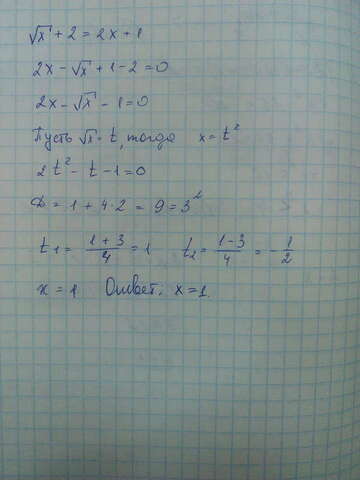 √x + 2 = 2x + 1
2x - √x + 1 - 2 = 0
2x - √x - 1 = 0
Пусть √x = t, тогда x = t²
2t² - t - 1 = 0
D = 1 + 4·2 = 9 = 3²
t₁ = (1 + 3)/4 = 1 t₂ = (1 - 3)/4 = -1/2
x = 1 Ответ: x = 1.